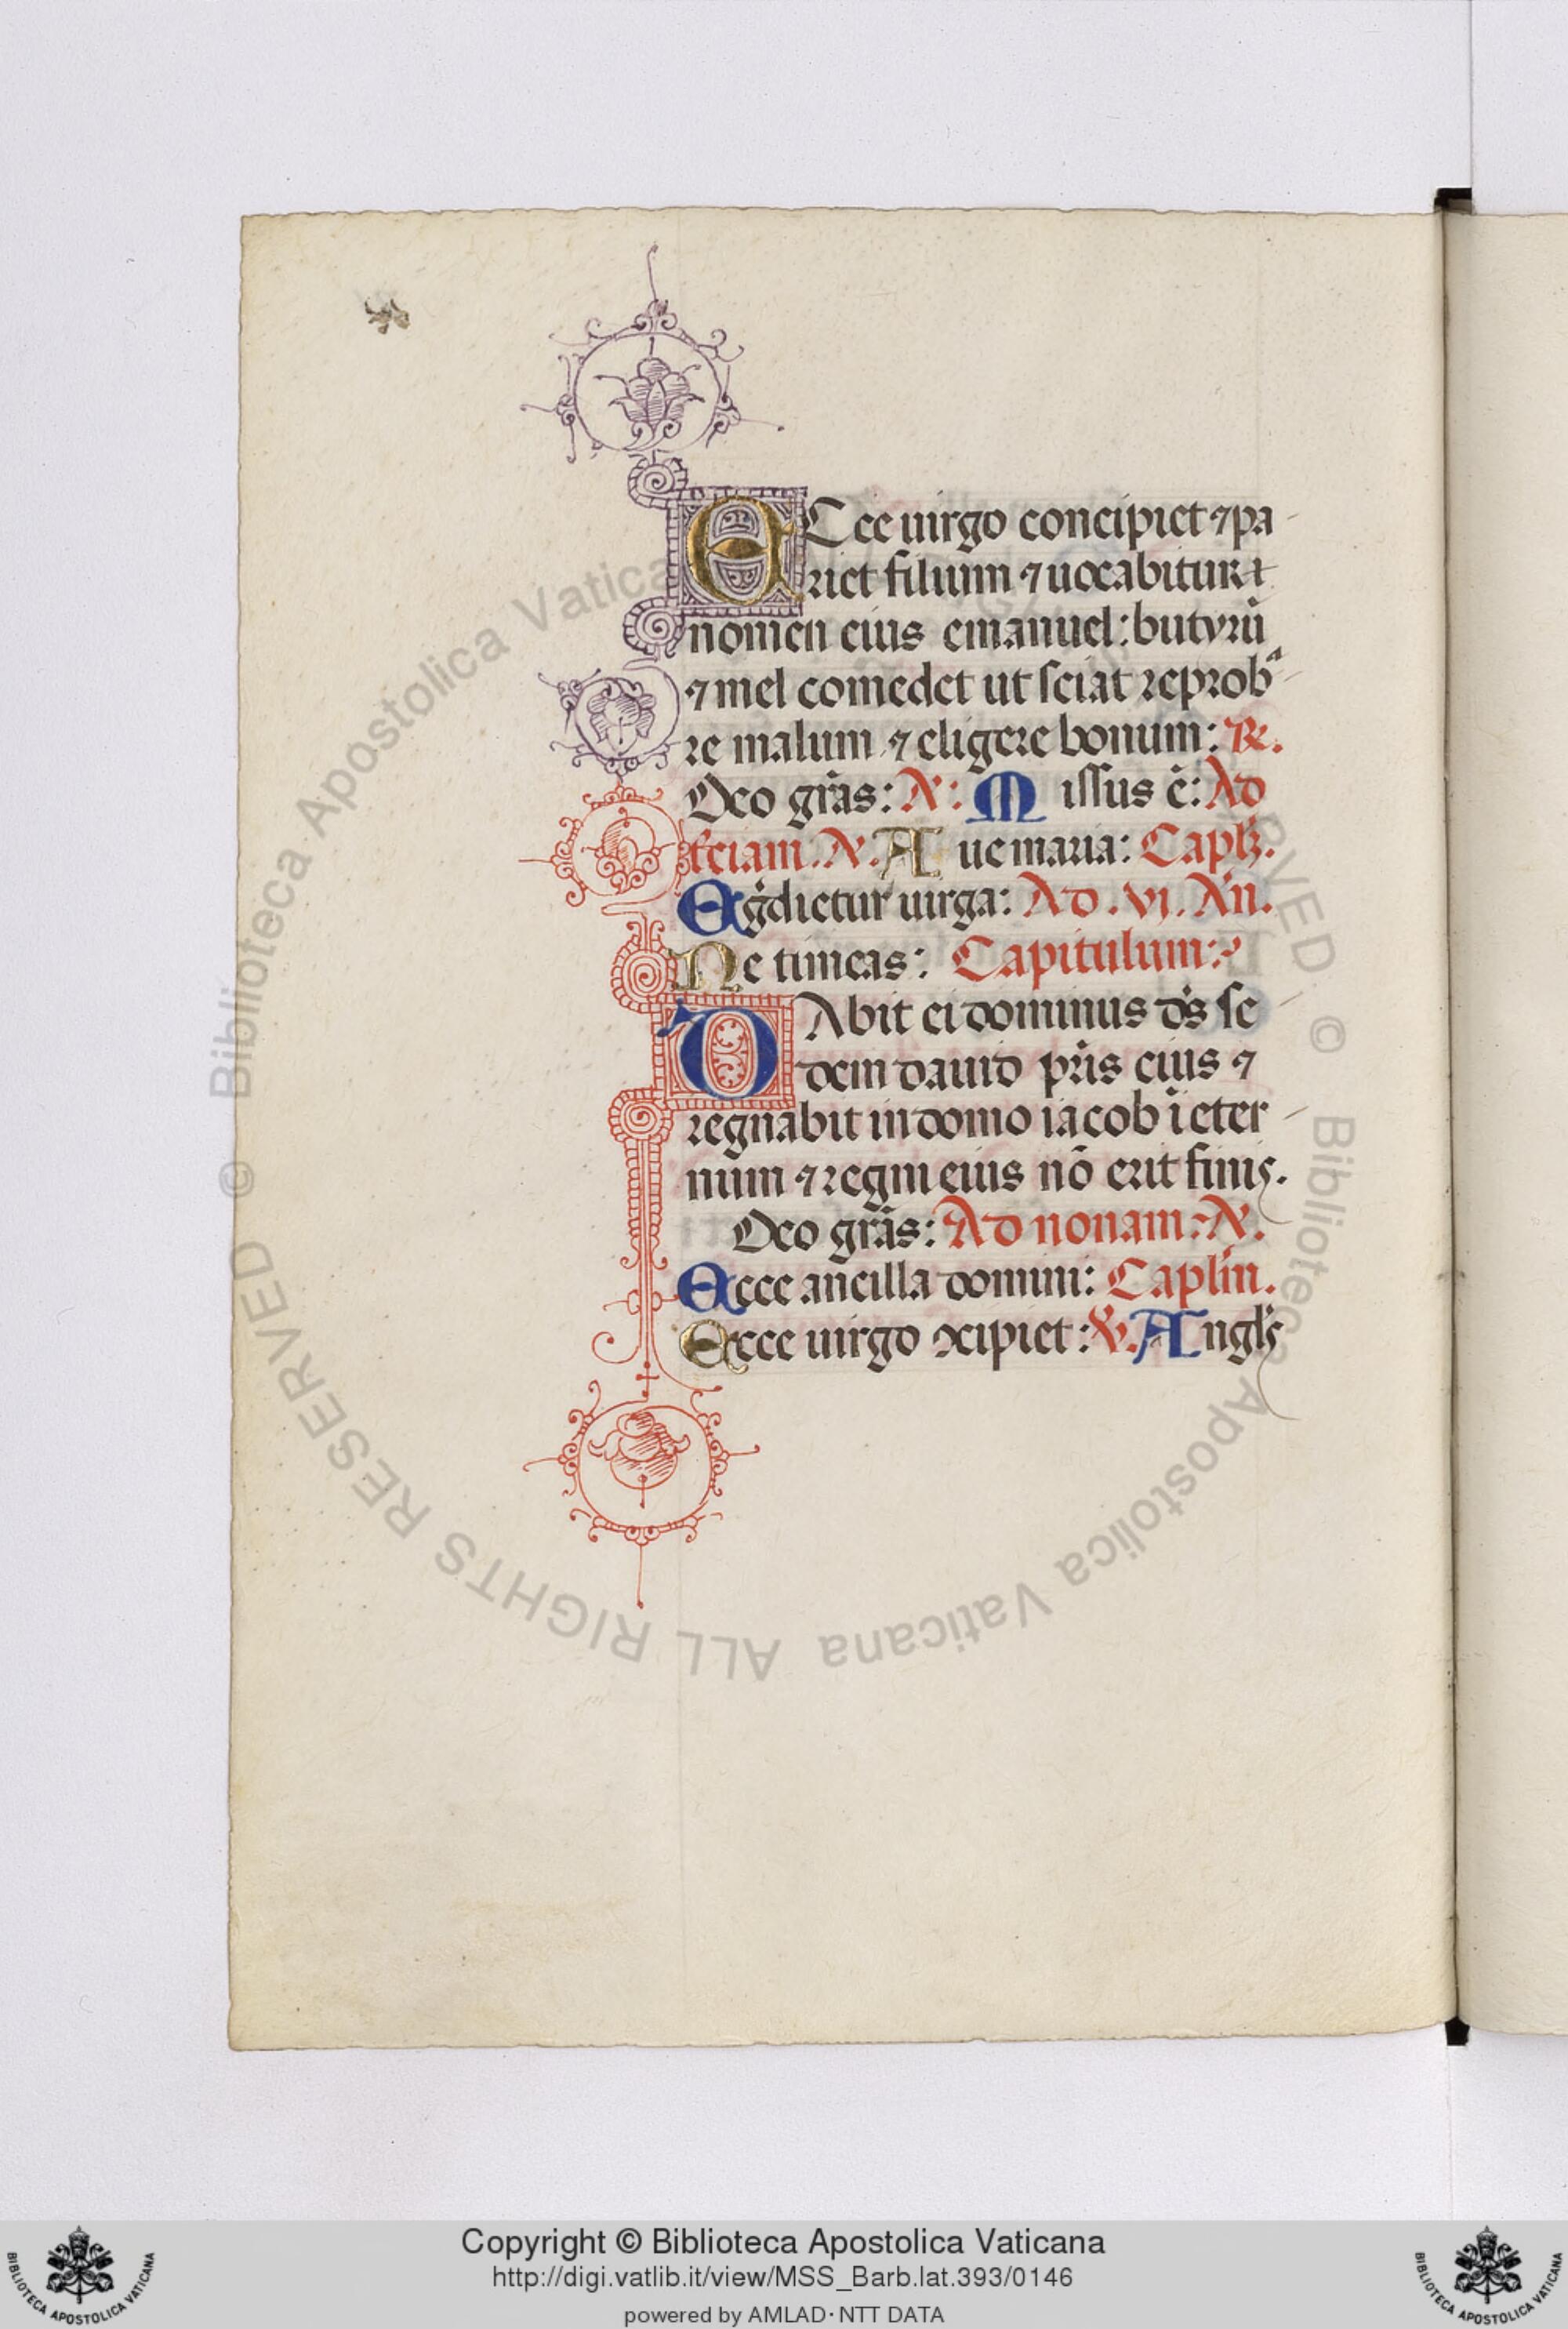 ECce uirgo concipiet ⁊ pa
riet filium ⁊ uocabitur
nomen eius emanuel: butyrũ
⁊ mel comedet ut sciat reprobᵃ
re malum ⁊ eligere bonum: ℞.
Deo grãs: A: Missus ẽ: Ad
t̃ciam. A. Aue maria: Capl̃.
Egdietur uirga: Ad .vi. Añ.
Ne timeas: Capitulum:
DAbit ei dominus dũs se
dem dauid pr̃is eius ⁊
regnabit in domo iacob ĩ eter
num ⁊ regni eius nõ erit finis.
Deo grãs: Ad nonam: A.
Ecce ancilla domini: Caplm̃.
Ecce uirgo ↄcipiet: ℣. Angl̃s
© Biblioteca Apostolica Vaticana
ALL RIGHTS RESERVED
Copyright © Biblioteca Apostolica Vaticana
http://digi.vatlib.it/view/MSS_Barb.lat.393/0146
powered by AMLAD·NTT DATA
BIBLIOTECA APOSTOLICA VATICANA
BIBLIOTECA APOSTOLICA VATICANA